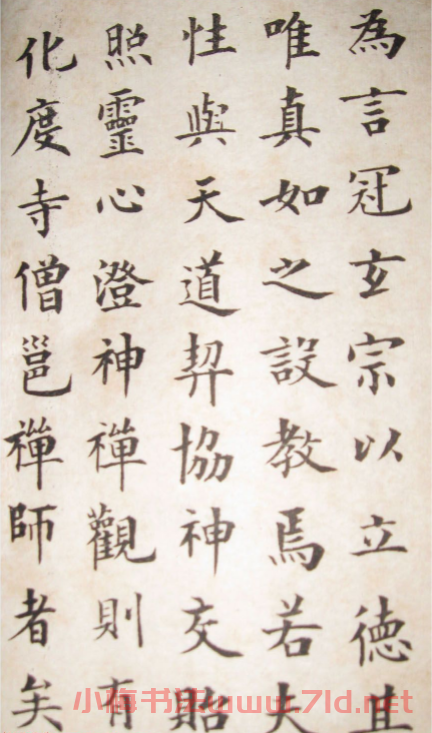 為言冠玄宗以立德其
唯真如之設教焉若夫
性與天道契協神交貽
照靈心澄神禪觀則有
化度寺僧邕禪師者矣
小梅书法www.7ld.net